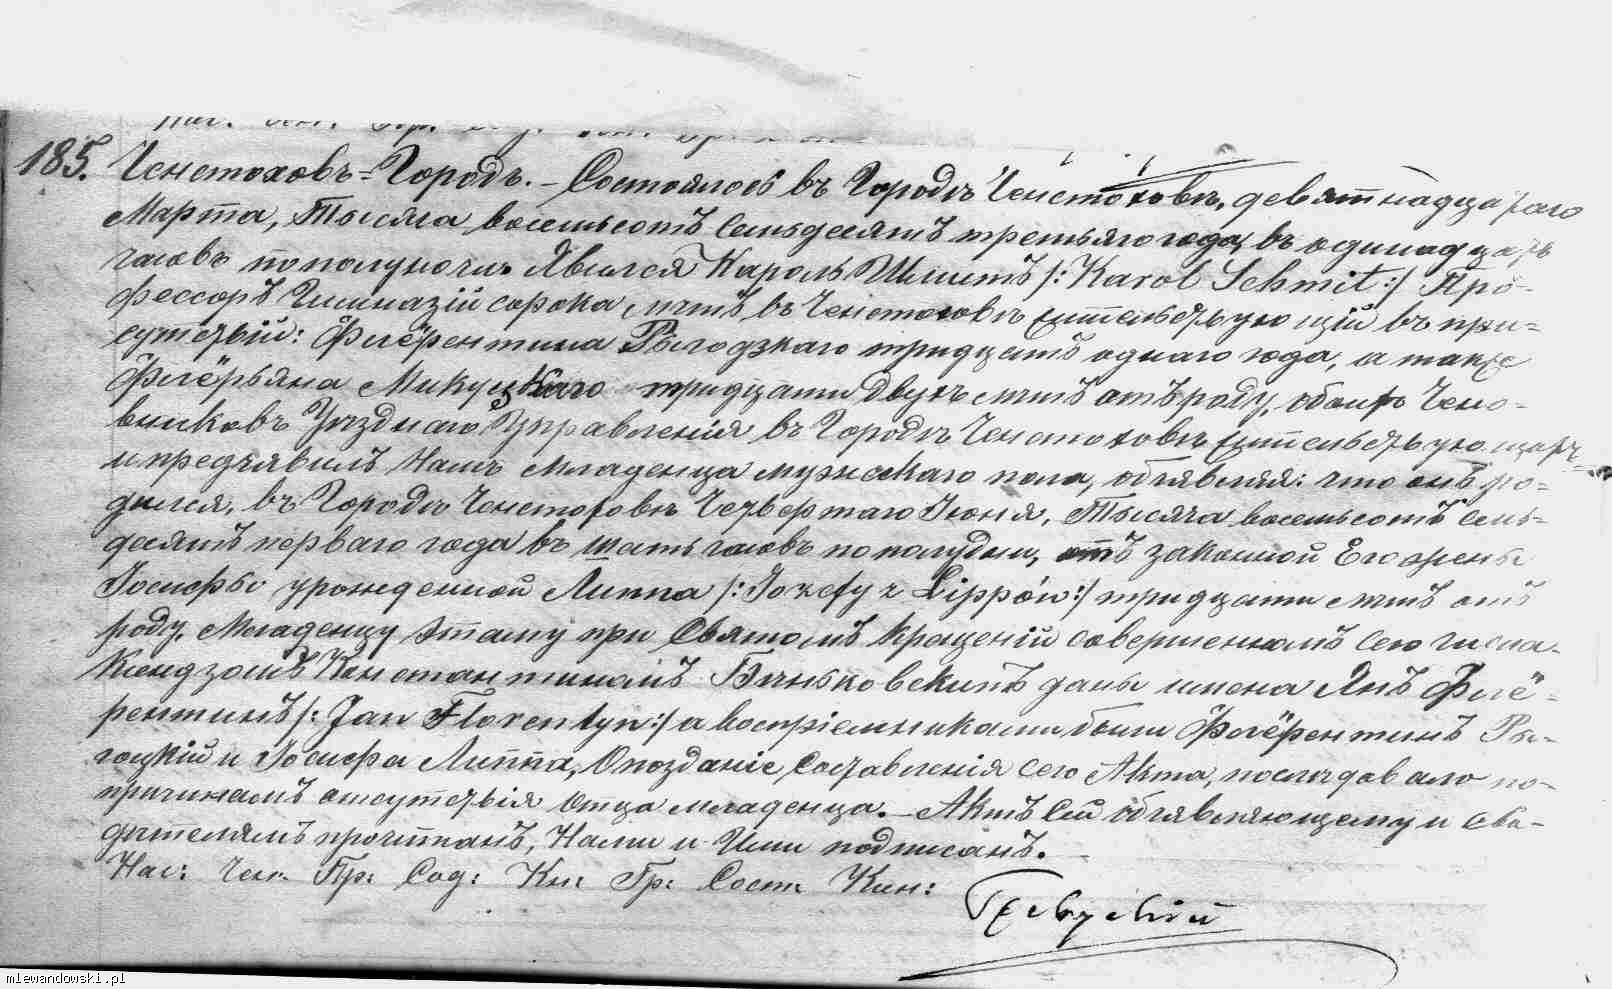 185. Ченстоховъ-Городъ. – Состоялось въ Городѣ Ченстоховѣ, девятнадцатаго
Марта, Тысяча восемьсотъ семьдесятъ третьяго года, въ одинадцать
часовъ пополуночи. Явился Кароль Шмитъ /: Karol Schmit :/ Про-
фессоръ Гимназіи сорока лѣтъ, въ Ченстоховѣ жительствующій въ при-
сутствіи: Флёрентина Рогодзкаго тридцать однаго года, а также
Флёрьяна Микуцкаго тридцати двухъ лѣтъ отъ роду, обоихъ Чено-
вниковъ Уѣзднаго Управленія въ Городѣ Ченстоховѣ жительствующихъ
и предъявилъ Намъ младенца мужскаго пола, объявляя: что онъ ро-
дился, въ Городѣ Ченстоховѣ Четвертаго Іюня, Тысяча восемьсотъ семь-
десятъ перваго года въ шать часовъ пополудни, отъ законной Его жены
Іосифы урожденной Липпа /: Jozefy z Lippów :/ тридцати лѣтъ отъ
роду. Младенцу этому при Святомъ Крещеніи совершенномъ сего числа
Ксендзомъ Константиномъ даны имена Янъ Флё-
рентинъ /: Jan Florentyn :/ а воспріемниками были Флёрентинъ Ры-
гоцкій и Іосифа Липпа, Опозданіе Составленія сего Акта, послѣдовало по
причинамъ отсутствія Отца младенца. – Актъ Сей объявляющему и сви-
дѣтелямъ прочитанъ, Нами и Ими подписанъ.
Нас: Чен: Пр: Сод: Кн: Гр: Сост: Кин:
mlewandowski.pl